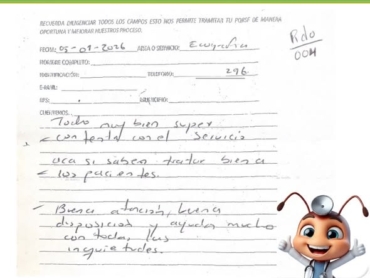 RECUERDA DILIGENCIAR TODOS LOS CAMPOS ESTO NOS PERMITE TRAMITAR TU PQRSF DE MANERA
OPORTUNA Y MEJORAR NUESTROS PROCESO.
Rdo
OOH
FECHA: 05-01-2026 AREA O SERVICIO: Ecografia
NOMBRE COMPLETO:
IDENTIFICACIÓN: TELEFONO: 296
E-MAIL:
EPS: MUNICIPIO:
Todo muy bien super
contenta con el servicio
aca si saben tratar bien a
los pacientes.
Buena atención, buena
disposicion y ayuda mucho
con todas las
inquietudes.